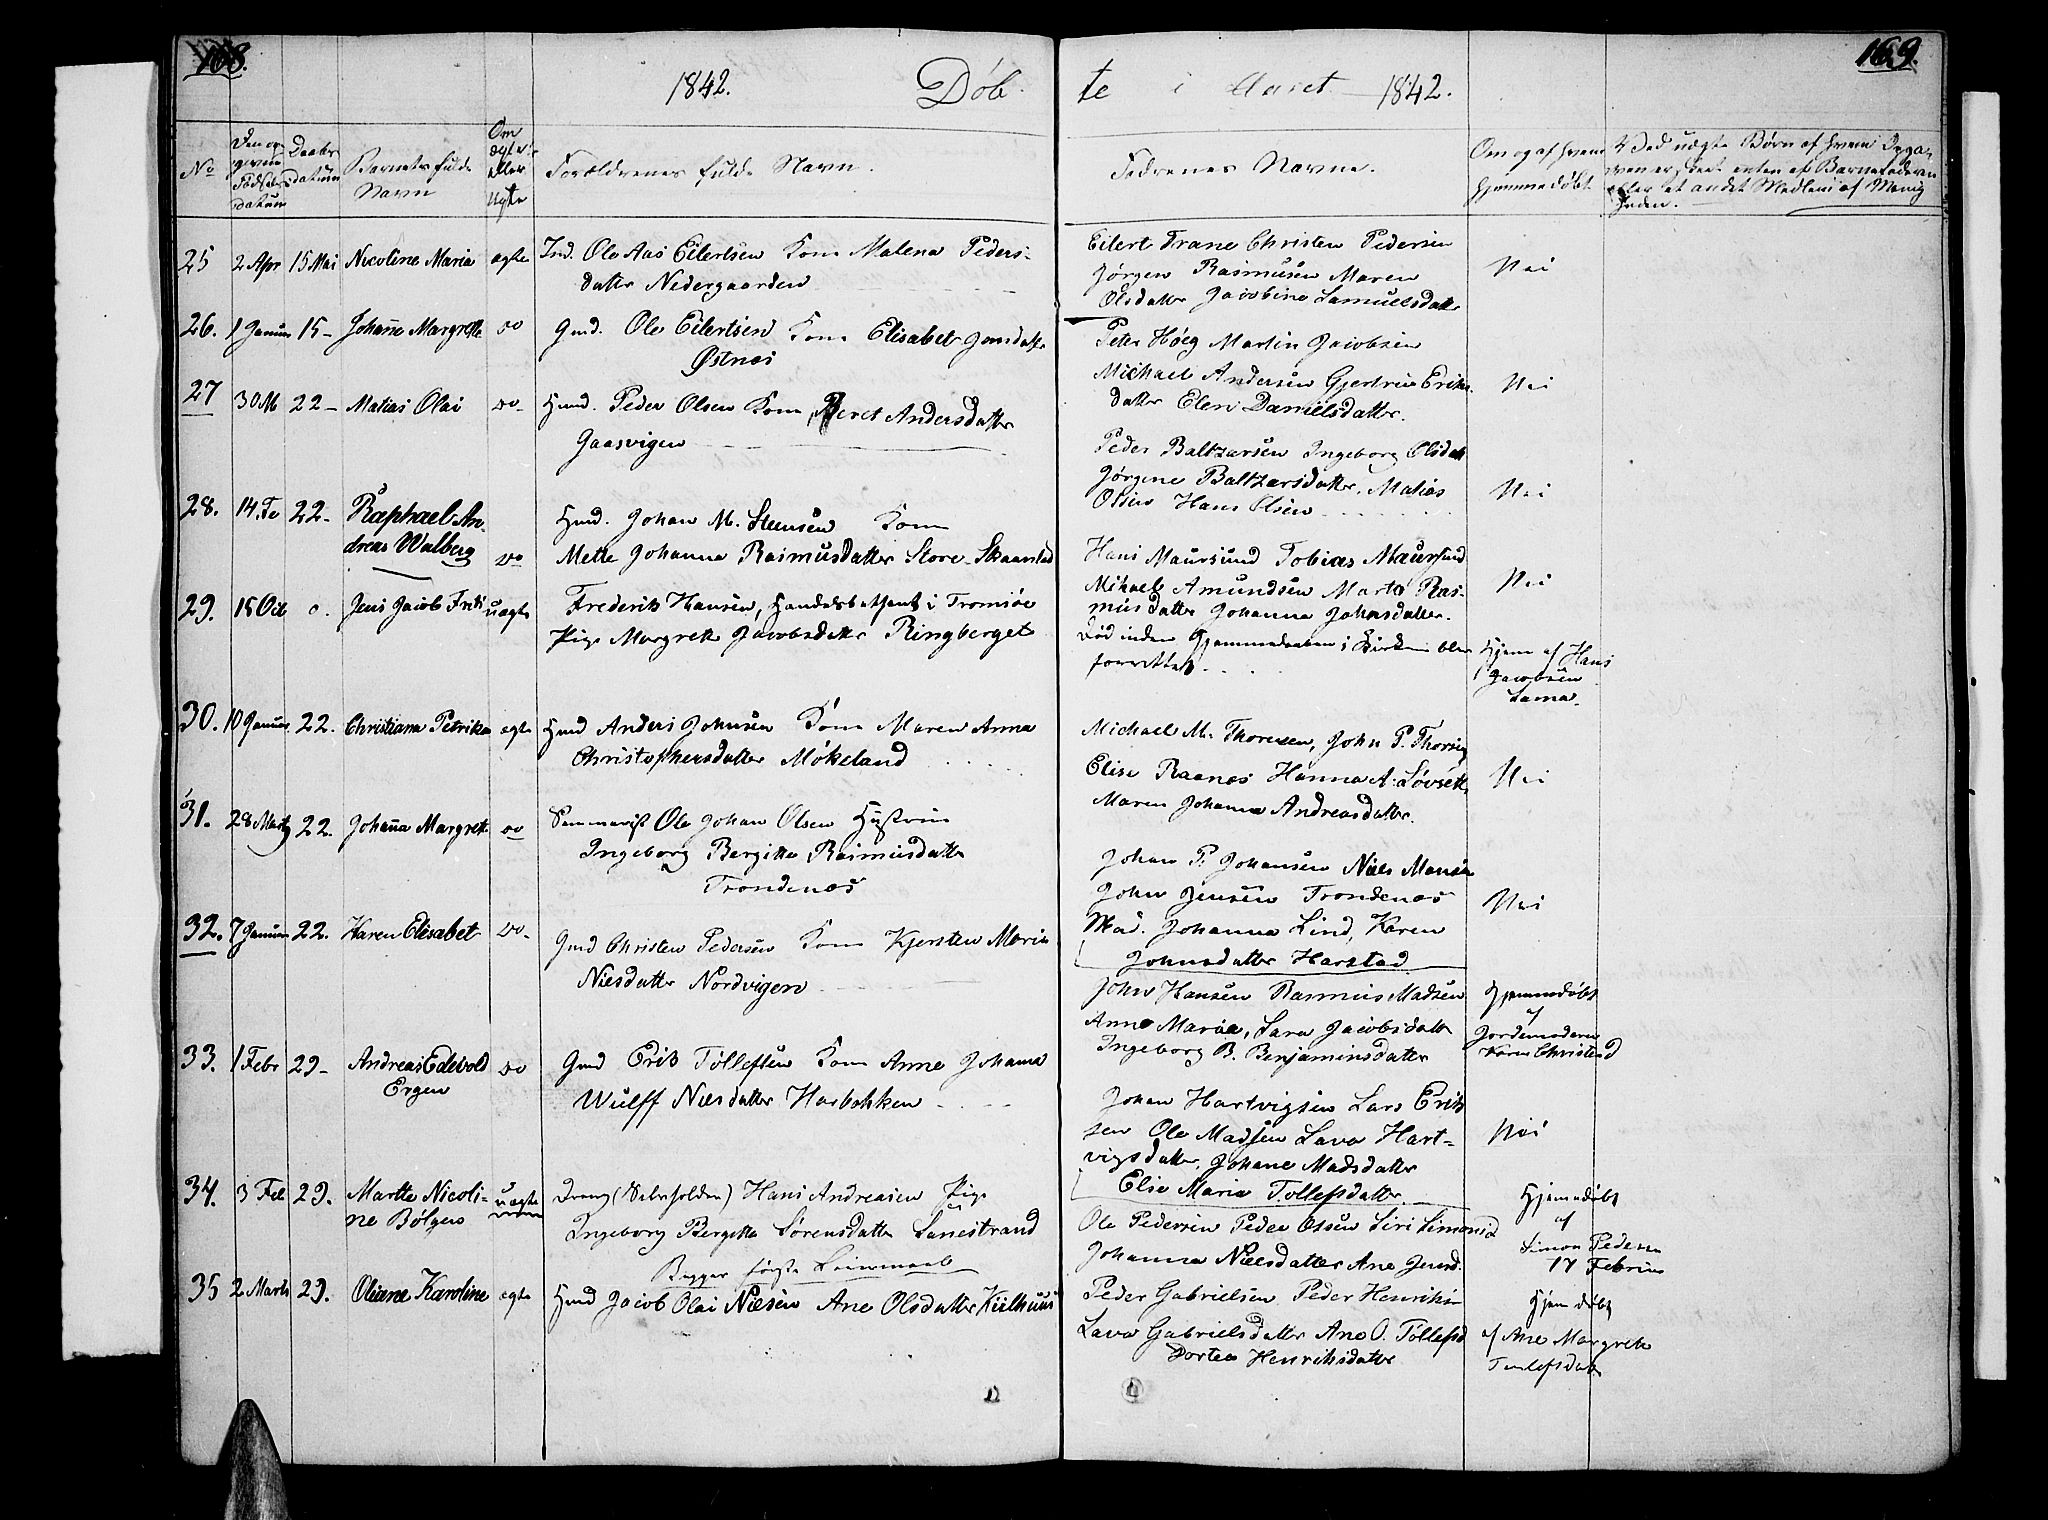 168.
169.
1842. Døb te i Aaret 1842.
No
Den op
givene
Fødsels
datum
Daabs
datum
Barnets fulde
Navn
Om
ægte
eller
Uægte
Forældrenes fulde Navn.
Fadrenes Navne.
Om og af hvem
hjemmedøbt
Ved uægte Børn af hvem Opga-
ven er skeet enten af Barnefaderen
eller et andet Medlem af Menig
heden.
25 2 Apr 15 Mai Nicoline Maria ægte Ind. Ole Aas Eilertsen Kone Malena Peders-
datter Nedergaarden
Eilert Trane Christen Pedersen
Jørgen Rasmusen Maren
Olsdatter Jacobine Samuelsdatter
Nei
26. 1 Januar 15 - Johanne Margrethe do Gmd. Ole Eilertsen Kone Elisabet Jonsdatter
Østnes
Peter Høeg Martin Jacobsen
Michael Andersen Gjertrue Eriks
datter Elen Danielsdatter.
Nei
27 30 M 22 - Matias Olai do- Huusd. Peder Olsen Kone Beret Andersdatter
Gaasvigen
Peder Baltzarsen Ingeborg Olsdatt
Jørgene Baltzarsdatter, Matias
Olsen Hans Olsen
Nei
28. 14. Fe 22 - Raphael An-
dreas Walberg do
Huusd. Johan M. Steensen Kone
Mette Johanna Rasmusdatter Store-Skaanstad
Hans Maursund Tobias Maursund
Mikael Amundsen Marta Ras-
musdatter Johanna Johnsdatter.
Nei
29. 18 Oct o. Jens Jacob Fridr uægte Frederik Hansen, Handelsbetjent i Tromsøe
Pige Margrethe Jacobsdatter Ringberget
Død inden Hjemmedaaben i Kirken blev
forrettet
Hjem af Hans
Jacobsen
Sama.
30. 10 Januar 22. Christiana Petrikka ægte Huusd Anders Johnsen Kone Maren Anna
Christophersdatter Møkeland
Michael M. Thoresen, John P. Thoresen
Elise Raanes Hanna A. Løvseth
Maren Johanna Andreasdatter.
Nei
31. 28 Marts 22. Johanna Margreth do Seminarist Ole Johan Olsen Hustrue
Ingeborg Bergitta Rasmusdatter
Trondenæs
Johan P. Johansen Niels Monsen
John Jensen Trondenæs
Mad. Johanna Lind, Karen
Johnsdatter Harstad
Nei
32. 7 Januar 22. Karen Elisabet do- Gmd Christen Pedersen Kone Kjersten Maria
Nielsdatter Nordvigen
John Hansen Rasmus Madsen
Anne Maria, Sara Jacobsdatter
Ingeborg B. Benjaminsdatter
Hjemmedøbt
af
Jordemoderen
Karen Christensd
33. 1 Febr 29 - Andreas Edevold
Ergen do
Gmd Erik Tøllefsen Kone Anne Johana
Wulff Nielsdatter Harbakken
Johan Hartvigsen Lars Erik
sen Ole Madsen Lava Hart-
vigsdatter, Johane Madsdatter
Elise Maria Tollefsdatter.
Nei
34. 3 Feb 29. Martte Nicoli-
ne Bølgers uægte
Dreng (Saberholden) Hans Andreasen Pige
Ingeborg Bergitta Sørensdatter Sanestrand
Begges første Leiermaal
Ole Pedersen Peder Olsen Siri Simonsd
Johanna Nielsdatter Ane Jensd.
Hjemmedøbt
af
Simon Pedersen
17 Februar
35 2 Marts 29. Oliane Karoline ægte Huusd Jacob Olai Nielsen Ane Olsdatter Kiilhuus
Peder Gabrielsen Peder Henriksen
Lava Gabrielsdatter Ane O. Tøllefsd
Dortea Henriksdatter
Hjemdøbt
af Ane Margrete
Tønlefsdatter